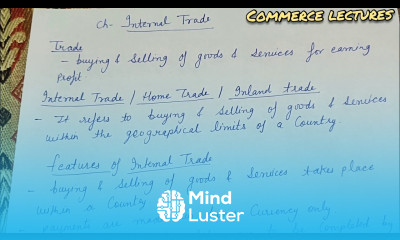 COMMERCE LECTURES
Ch- Internal Trade
Trade
- buying & selling of goods & services for earning
profit.
Internal Trade / Home Trade / Inland trade
- It refers to buying & selling of goods & services
within the geographical limits of a Country.
features of Internal Trade
- buying & selling of goods & services takes place
within a Country
Currency only
Mind
Luster